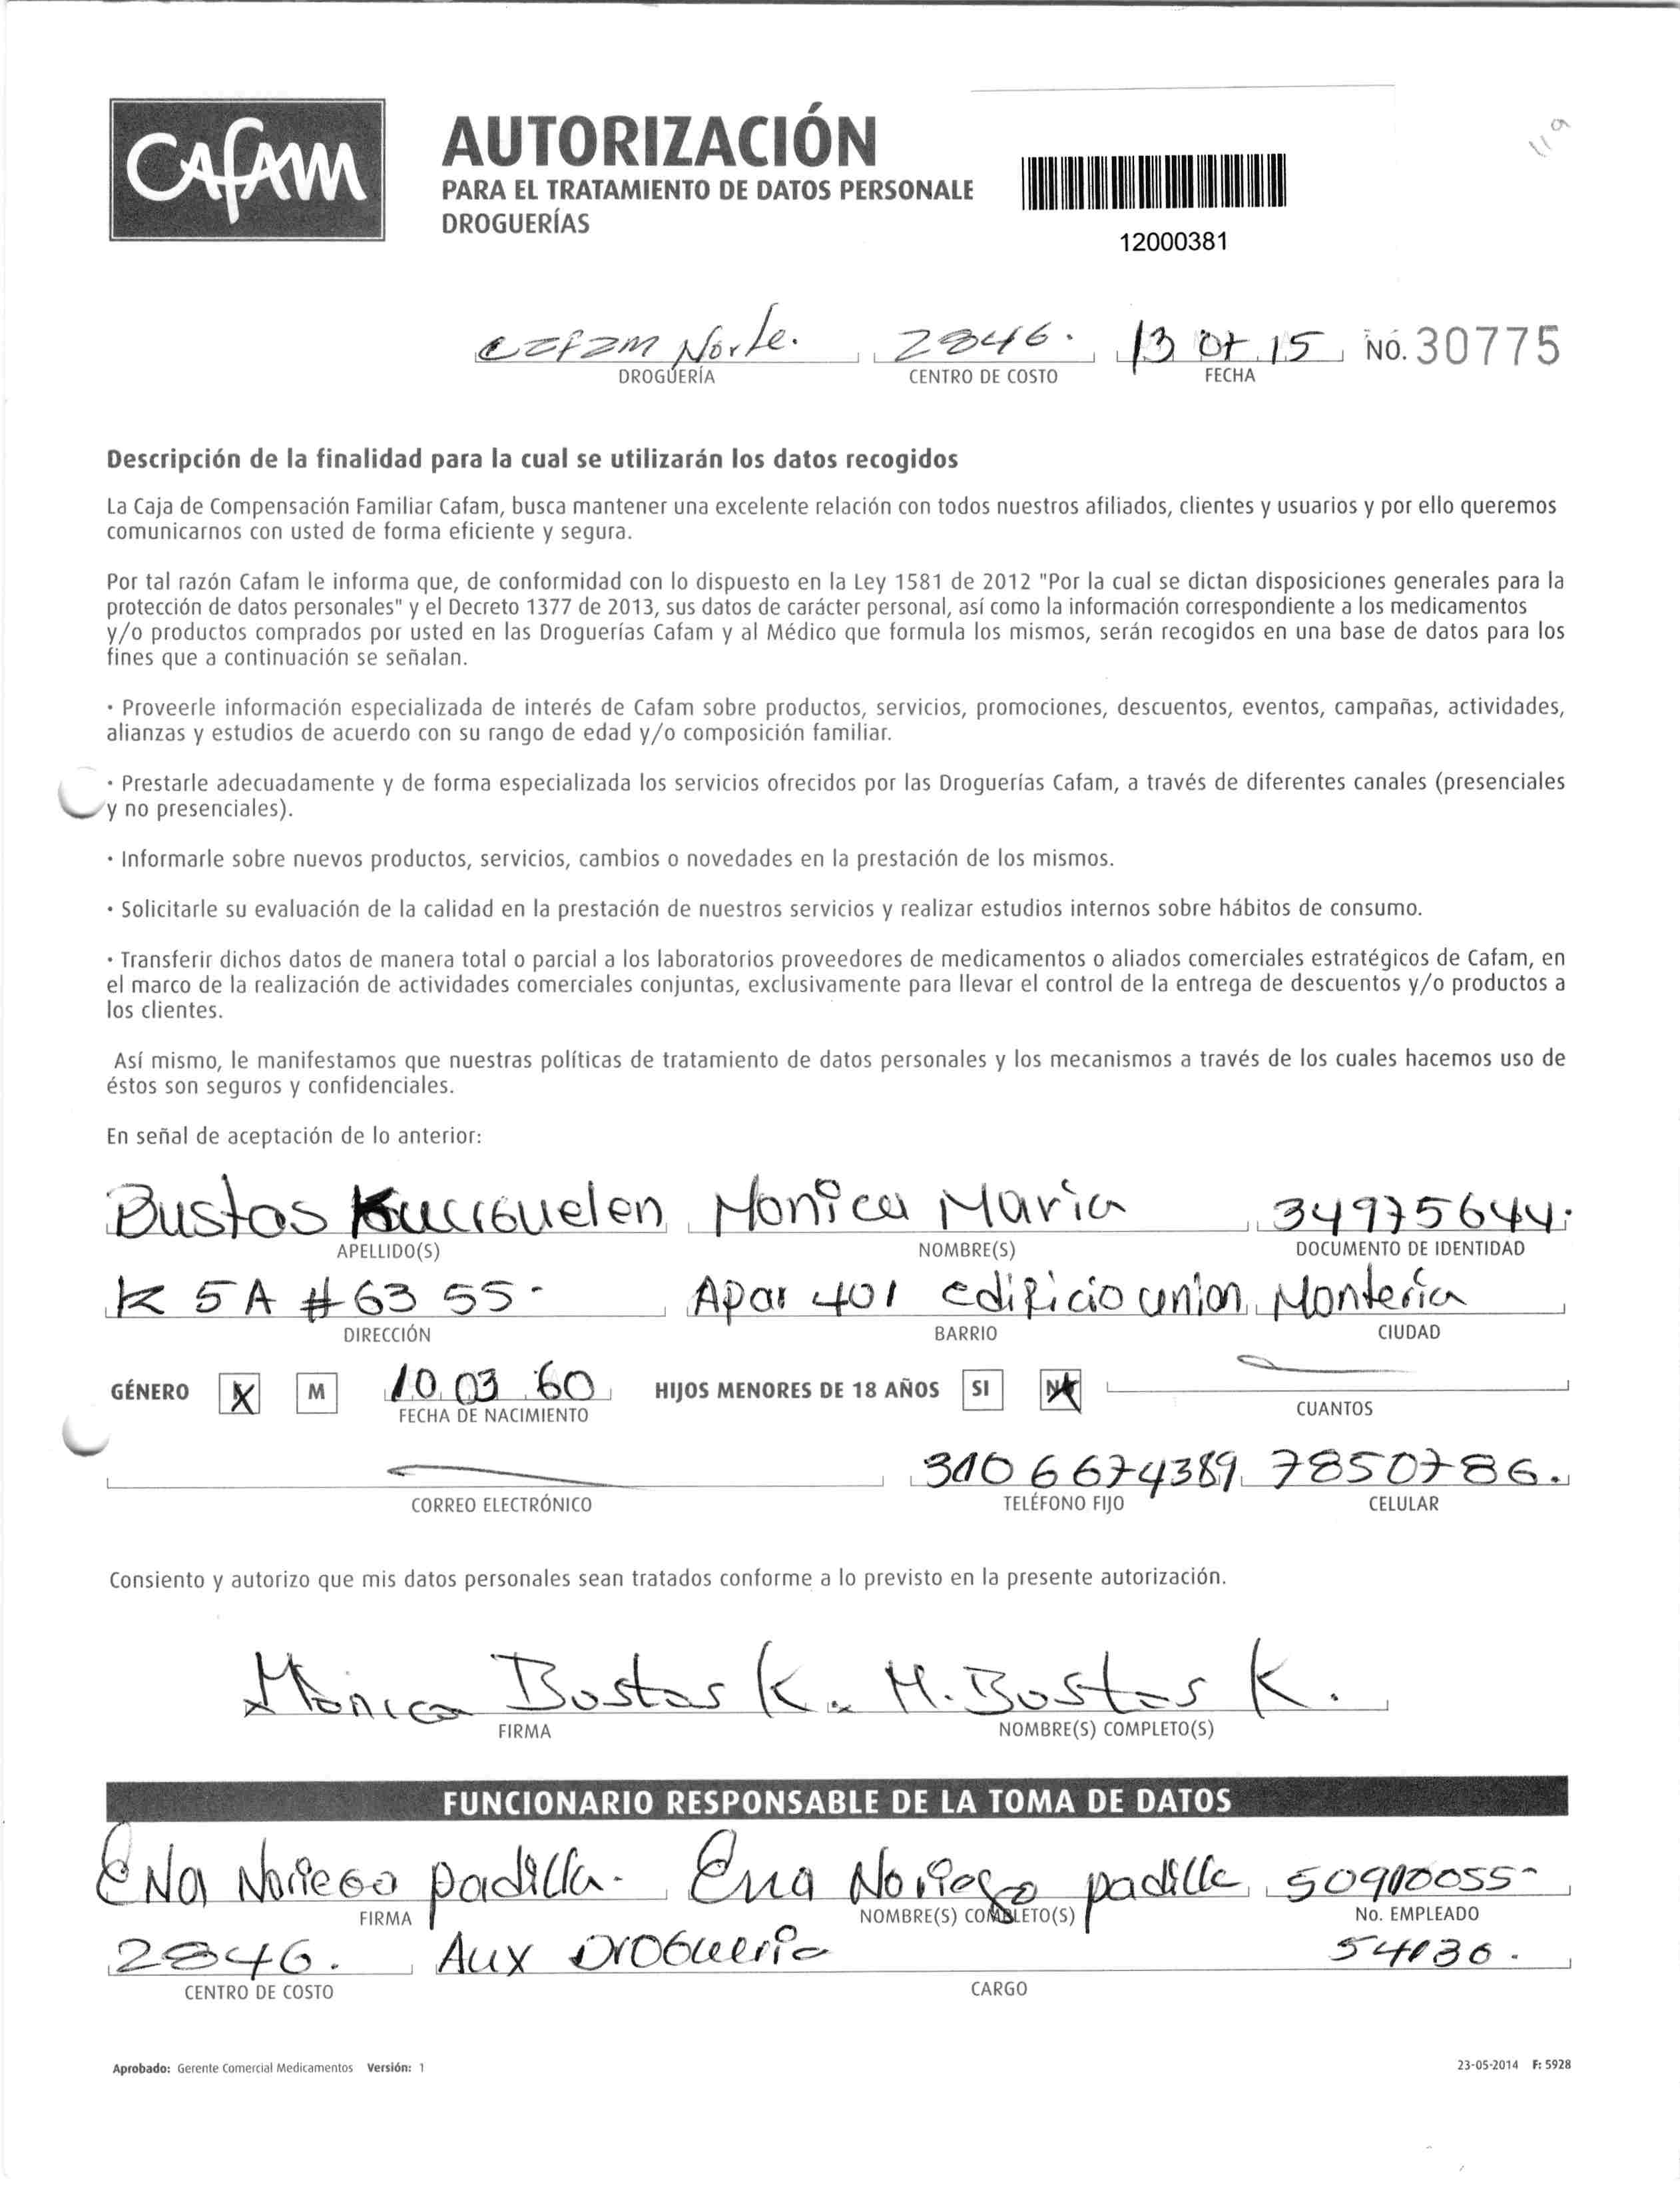 Cafam
AUTORIZACIÓN
PARA EL TRATAMIENTO DE DATOS PERSONALE
DROGUERÍAS
12000381
119
cafam Norte. 2846. 13 07 15 NO. 30775
DROGUERÍA CENTRO DE COSTO FECHA
Descripción de la finalidad para la cual se utilizarán los datos recogidos
La Caja de Compensación Familiar Cafam, busca mantener una excelente relación con todos nuestros afiliados, clientes y usuarios y por ello queremos
comunicarnos con usted de forma eficiente y segura.
Por tal razón Cafam le informa que, de conformidad con lo dispuesto en la Ley 1581 de 2012 "Por la cual se dictan disposiciones generales para la
protección de datos personales" y el Decreto 1377 de 2013, sus datos de carácter personal, así como la información correspondiente a los medicamentos
y/o productos comprados por usted en las Droguerías Cafam y al Médico que formula los mismos, serán recogidos en una base de datos para los
fines que a continuación se señalan.
· Proveerle información especializada de interés de Cafam sobre productos, servicios, promociones, descuentos, eventos, campañas, actividades,
alianzas y estudios de acuerdo con su rango de edad y/o composición familiar.
· Prestarle adecuadamente y de forma especializada los servicios ofrecidos por las Droguerías Cafam, a través de diferentes canales (presenciales
y no presenciales).
· Informarle sobre nuevos productos, servicios, cambios o novedades en la prestación de los mismos.
· Solicitarle su evaluación de la calidad en la prestación de nuestros servicios y realizar estudios internos sobre hábitos de consumo.
· Transferir dichos datos de manera total o parcial a los laboratorios proveedores de medicamentos o aliados comerciales estratégicos de Cafam, en
el marco de la realización de actividades comerciales conjuntas, exclusivamente para llevar el control de la entrega de descuentos y/o productos a
los clientes.
Así mismo, le manifestamos que nuestras políticas de tratamiento de datos personales y los mecanismos a través de los cuales hacemos uso de
éstos son seguros y confidenciales.
En señal de aceptación de lo anterior:
Bustos Monica Maria 34975644.
APELLIDO(S) NOMBRE(S) DOCUMENTO DE IDENTIDAD
K 5A # 63 55 - Apar 401 edificio union Monteria
DIRECCIÓN BARRIO CIUDAD
GÉNERO X M 10 03 60 HIJOS MENORES DE 18 AÑOS SI NO
FECHA DE NACIMIENTO CUANTOS
310 6674389 7850786.
CORREO ELECTRÓNICO TELÉFONO FIJO CELULAR
Consiento y autorizo que mis datos personales sean tratados conforme a lo previsto en la presente autorización.
Monica Bustos K. M. Bustos K.
FIRMA NOMBRE(S) COMPLETO(S)
FUNCIONARIO RESPONSABLE DE LA TOMA DE DATOS
Ena Noriega padilla. Ena Noriega padilla 50910055-
FIRMA NOMBRE(S) COMPLETO(S) No. EMPLEADO
2846. Aux Drogueria 54136.
CENTRO DE COSTO CARGO
Aprobado: Gerente Comercial Medicamentos Versión: 1 23-05-2014 F: 5928